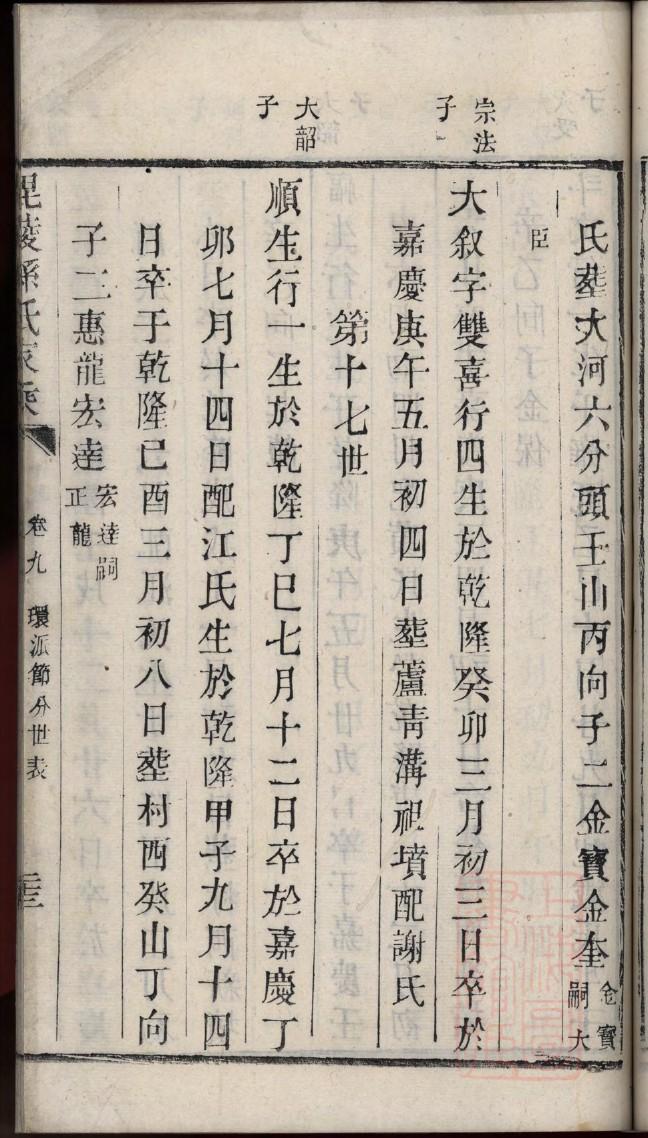 氏塟大河六分頭壬山丙向子二金寶金奎金寶嗣大
臣
宗法子
大叙字雙喜行四生於乾隆癸卯三月初三日卒於
嘉慶庚午五月初四日塟蘆青溝祖墳配謝氏
第十七世
大韶子
順生行一生於乾隆丁巳七月十二日卒於嘉慶丁
卯七月十四日配江氏生於乾隆甲子九月十四
日卒于乾隆己酉三月初八日塟村西癸山丁向
子二惠龍宏達宏達嗣正龍
毘陵孫氏家乘
卷九
環派節分世表